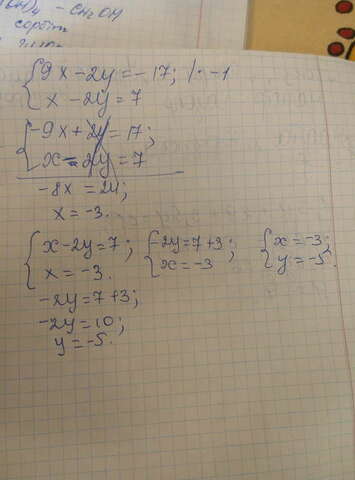 - CH₂OH
{9x-2y=-17; |·-1
x-2y=7
{-9x+2y=17;
x-2y=7
-8x=24;
x=-3.
{x-2y=7; {-2y=7+3; {x=-3;
x=-3. x=-3 y=-5.
-2y=7+3;
-2y=10;
y=-5.